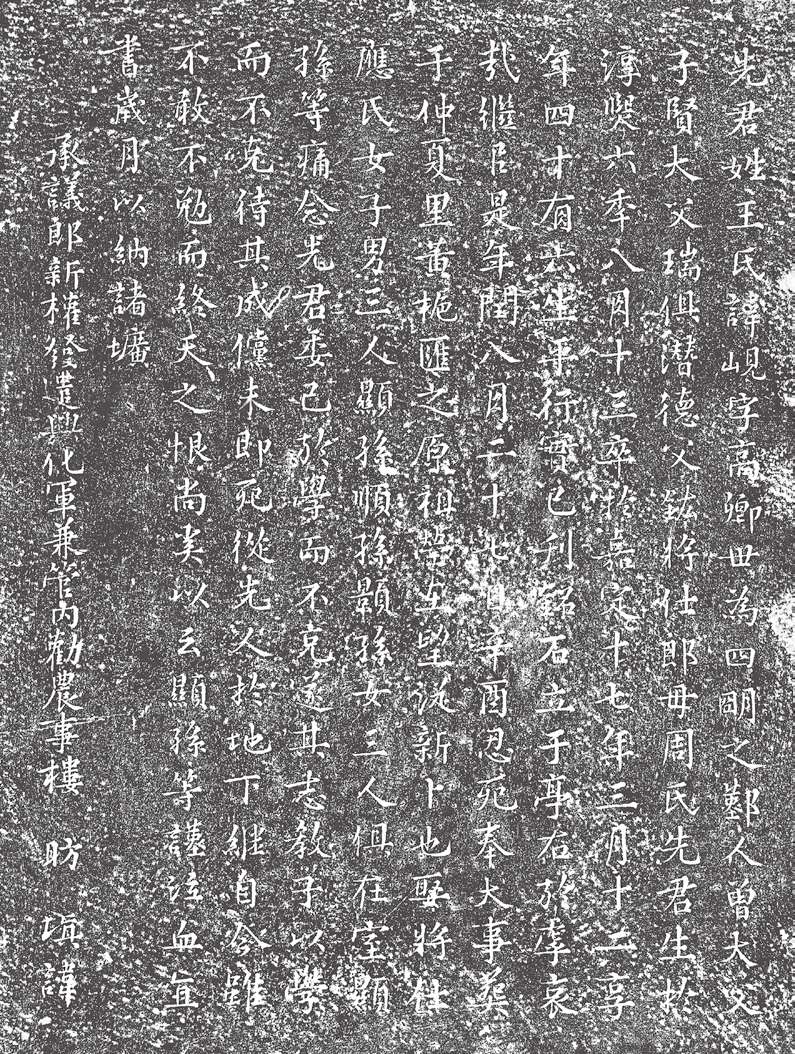 先君姓王氏諱峴字高卿世為四明之鄞人曾大父
子賢大父瑞俱潛德父鈜將仕郎母周氏先君生於
淳熙六季八月十三卒於嘉定十七年三月十二享
年四十有六生平行實已刋銘石立于亭右於虖哀
哉繼臣是年閏八月二十七日辛酉忍死奉大事葬
于仲夏里黃梔匯之原祖塋在望從新卜也娶將仕
應氏女子男三人顯孫順孫顥孫女三人俱在室顯
孫等痛念先君委己於學而不克遂其志教子以學
而不克待其成儻未即死從先人於地下繼自今雖
不敢不勉而終天之恨尚奚以云顯孫等謹泣血
書歲月以納諸壙
承議郎新權發遣興化軍兼管內勸農事樓 昉 填諱